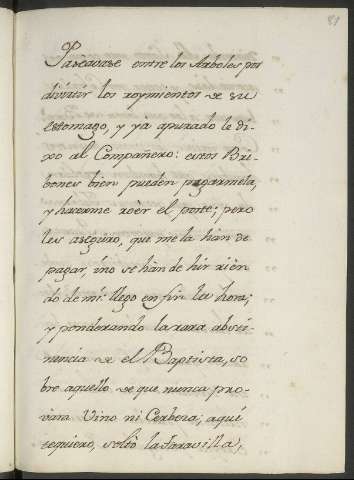 81
Paseavase entre los Arboles por
divirtir los roymientos de su
estomago, y ya apurado le di-
xo al Compañero: estos Bri-
bones bien pueden pagarmela,
y haverme roèr el poste; pero
les aseguro, que me la hàn de
pagar, ino se hàn de hir rièn
do de mi: llego en fin la hora;
y ponderando la rara absti-
nencia de el Baptista, so
bre aquello de que nunca pro-
vara Vino ni Cerbeza; aquì
tequiero, soltò la taravilla,